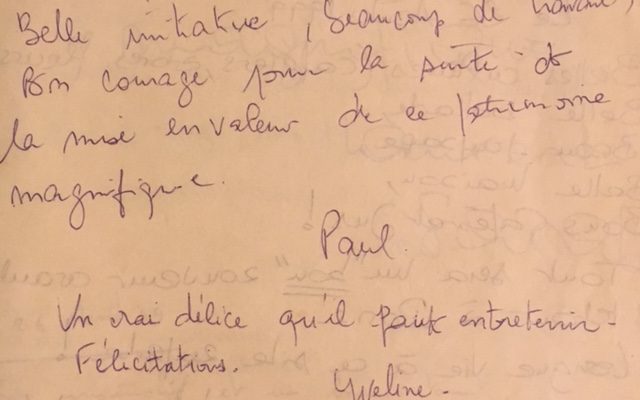 Belle initiative, beaucoup de travail,
Bon courage pour la suite et
la mise en valeur de ce patrimoine
magnifique.
Paul.
Un vrai délice qu'il faut entretenir.
Félicitations.
Yveline.